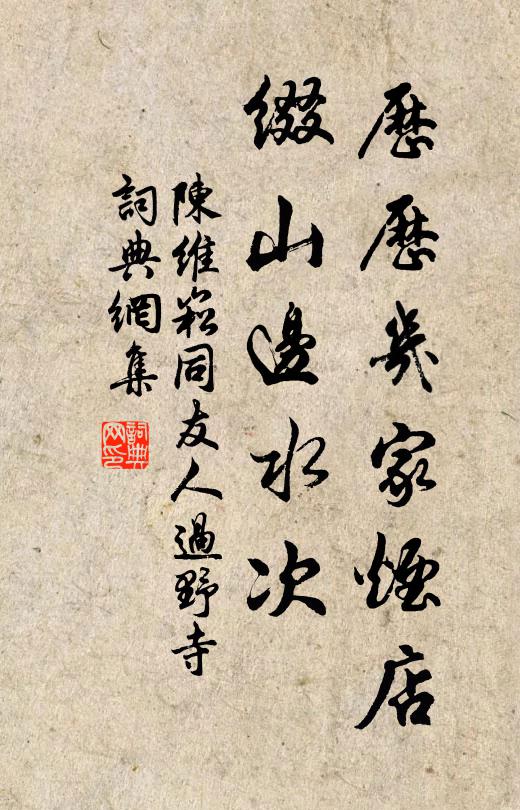 歷歷幾家煙店
綴山邊水次
陳維崧同友人過野寺
詞典網集
詞典
网印